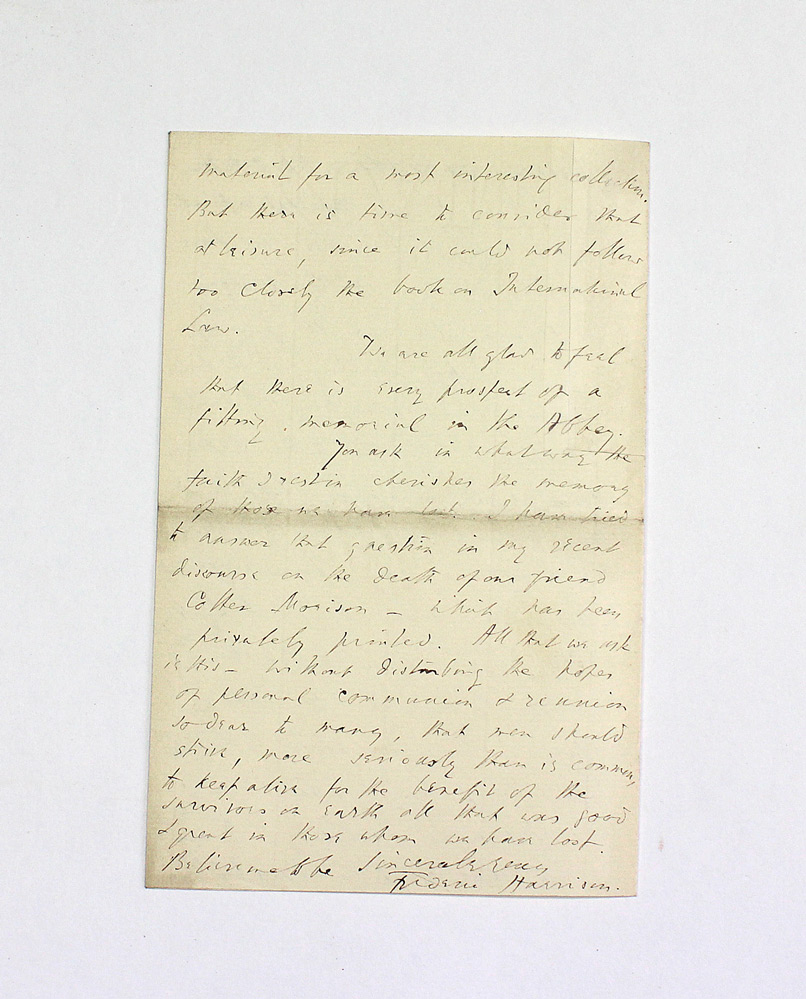 material for a most interesting collection.
But there is time to consider that
at leisure, since it could not follow
too closely the book on International
Law.
We are all glad to feel
that there is every prospect of a
fitting memorial in the Abbey.
You ask in what way the
faith I rest in cherishes the memory
of those we have lost. I have tried
to answer that question in my recent
discourse on the death of our friend
Cotter Morison – which has been
privately printed. All that we ask
is this – without disturbing the hopes
of personal communion & reunion
so dear to many, that men should
strive, more seriously than is common,
to keep alive for the benefit of the
survivors on earth all that was good
& great in those whom we have lost.
Believe me to be Sincerely yours
Frederic Harrison.